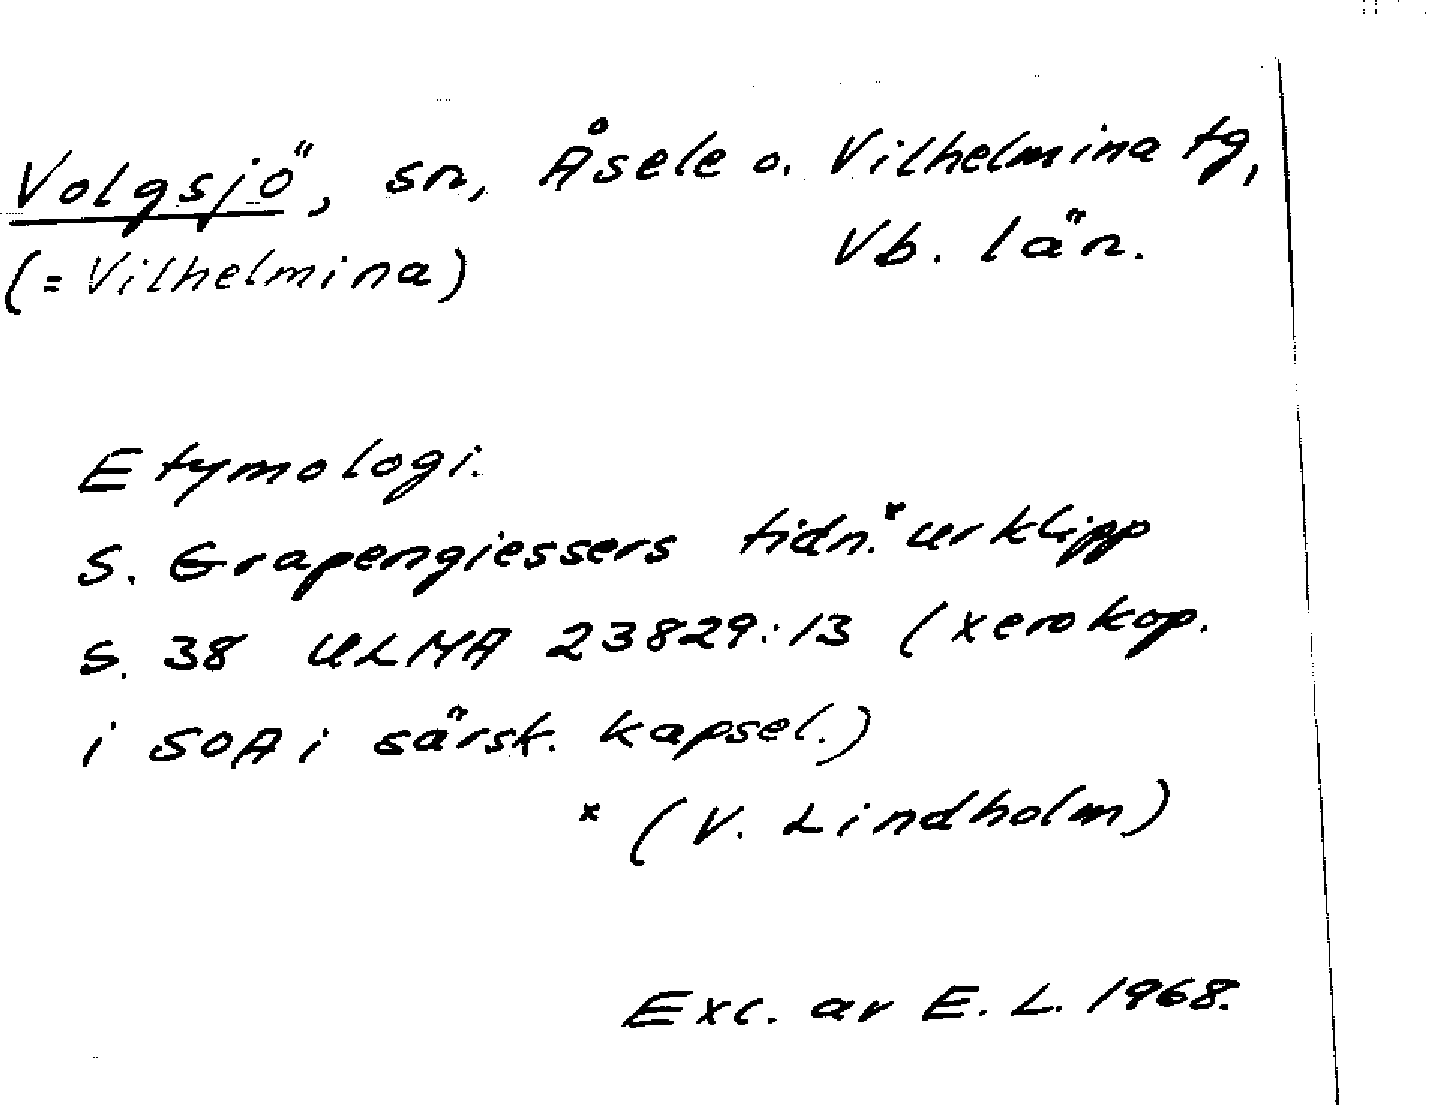 Volgsjö, sn, Åsele o. Vilhelmina tg,
(= Vilhelmina) Vb. län.
Etymologi.
S. Grapengiessers tidn.* urklipp
s. 38 ULMA 23829:13 (xerokop.
i SOA i särsk. kapsel.)
* (V. Lindholm)
Exc. av E. L. 1968.